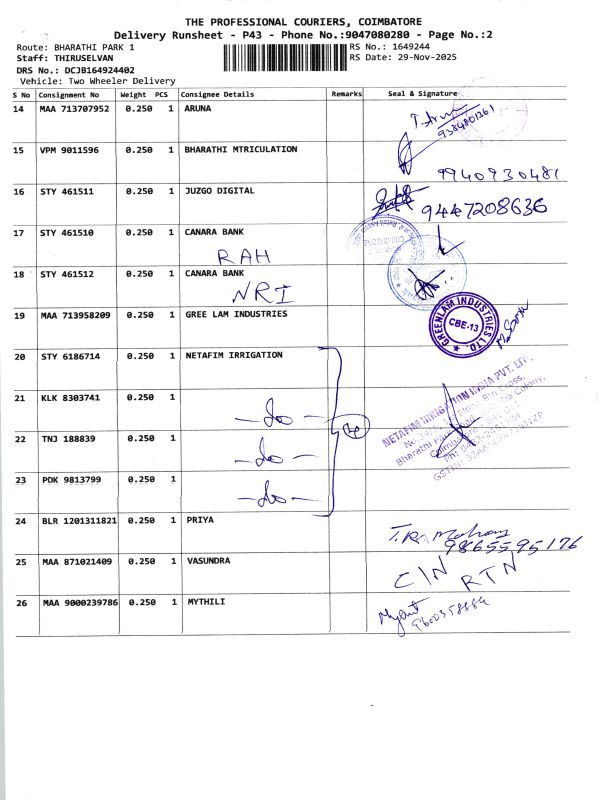 THE PROFESSIONAL COURIERS, COIMBATORE
Delivery Runsheet - P43 - Phone No.:9047080280 - Page No.:2
Route: BHARATHI PARK 1 RS No.: 1649244
Staff: THIRUSELVAN RS Date: 29-Nov-2025
DRS No.: DCJB164924402
Vehicle: Two Wheeler Delivery
S No Consignment No Weight PCS Consignee Details Remarks Seal & Signature
14 MAA 713707952 0.250 1 ARUNA
9384801361
15 VPM 9011596 0.250 1 BHARATHI MTRICULATION
9940930481
16 STY 461511 0.250 1 JUZGO DIGITAL
9447208636
17 STY 461510 0.250 1 CANARA BANK
RAH
18 STY 461512 0.250 1 CANARA BANK
NRI
19 MAA 713958209 0.250 1 GREE LAM INDUSTRIES
GREENLAM INDUSTRIES LTD.
CBE-13
20 STY 6186714 0.250 1 NETAFIM IRRIGATION
NETAFIM IRRIGATION INDIA PVT. LTD.,
21 KLK 8303741 0.250 1
-do-
22 TNJ 188839 0.250 1
-do-
23 PDK 9813799 0.250 1
-do-
24 BLR 1201311821 0.250 1 PRIYA
9865595176
25 MAA 871021409 0.250 1 VASUNDRA
C/N RTN
26 MAA 9000239786 0.250 1 MYTHILI